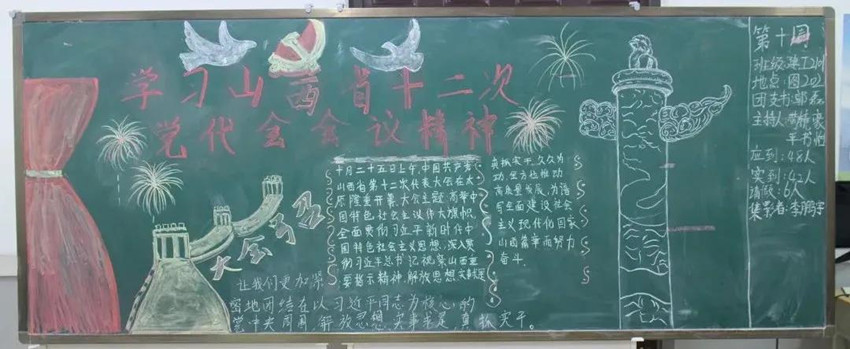 学习山西省十二次
党代会会议精神
大会号召
十月二十五日上午,中国共产党
山西省第十二次代表大会在太
原隆重开幕,大会主题:高举中
国特色社会主义伟大旗帜,
全面贯彻习近平新时代中
国特色社会主义思想,深入贯
彻习近平总书记视察山西重
要指示精神,解放思想
真抓实干、久久为
功,全方位推动
高质量发展,为谱
写全面建设社会
主义现代化国家
山西篇章而努力
奋斗。
让我们更加紧
密地团结在以习近平同志为核心的
党中央周围,解放思想,实事求是,真抓实干。
第十周
班级:建工2101
地点:图202
团支书:郭
主持人:
应到:48人
实到:42人
请假:6人
集影者:李鹏宇